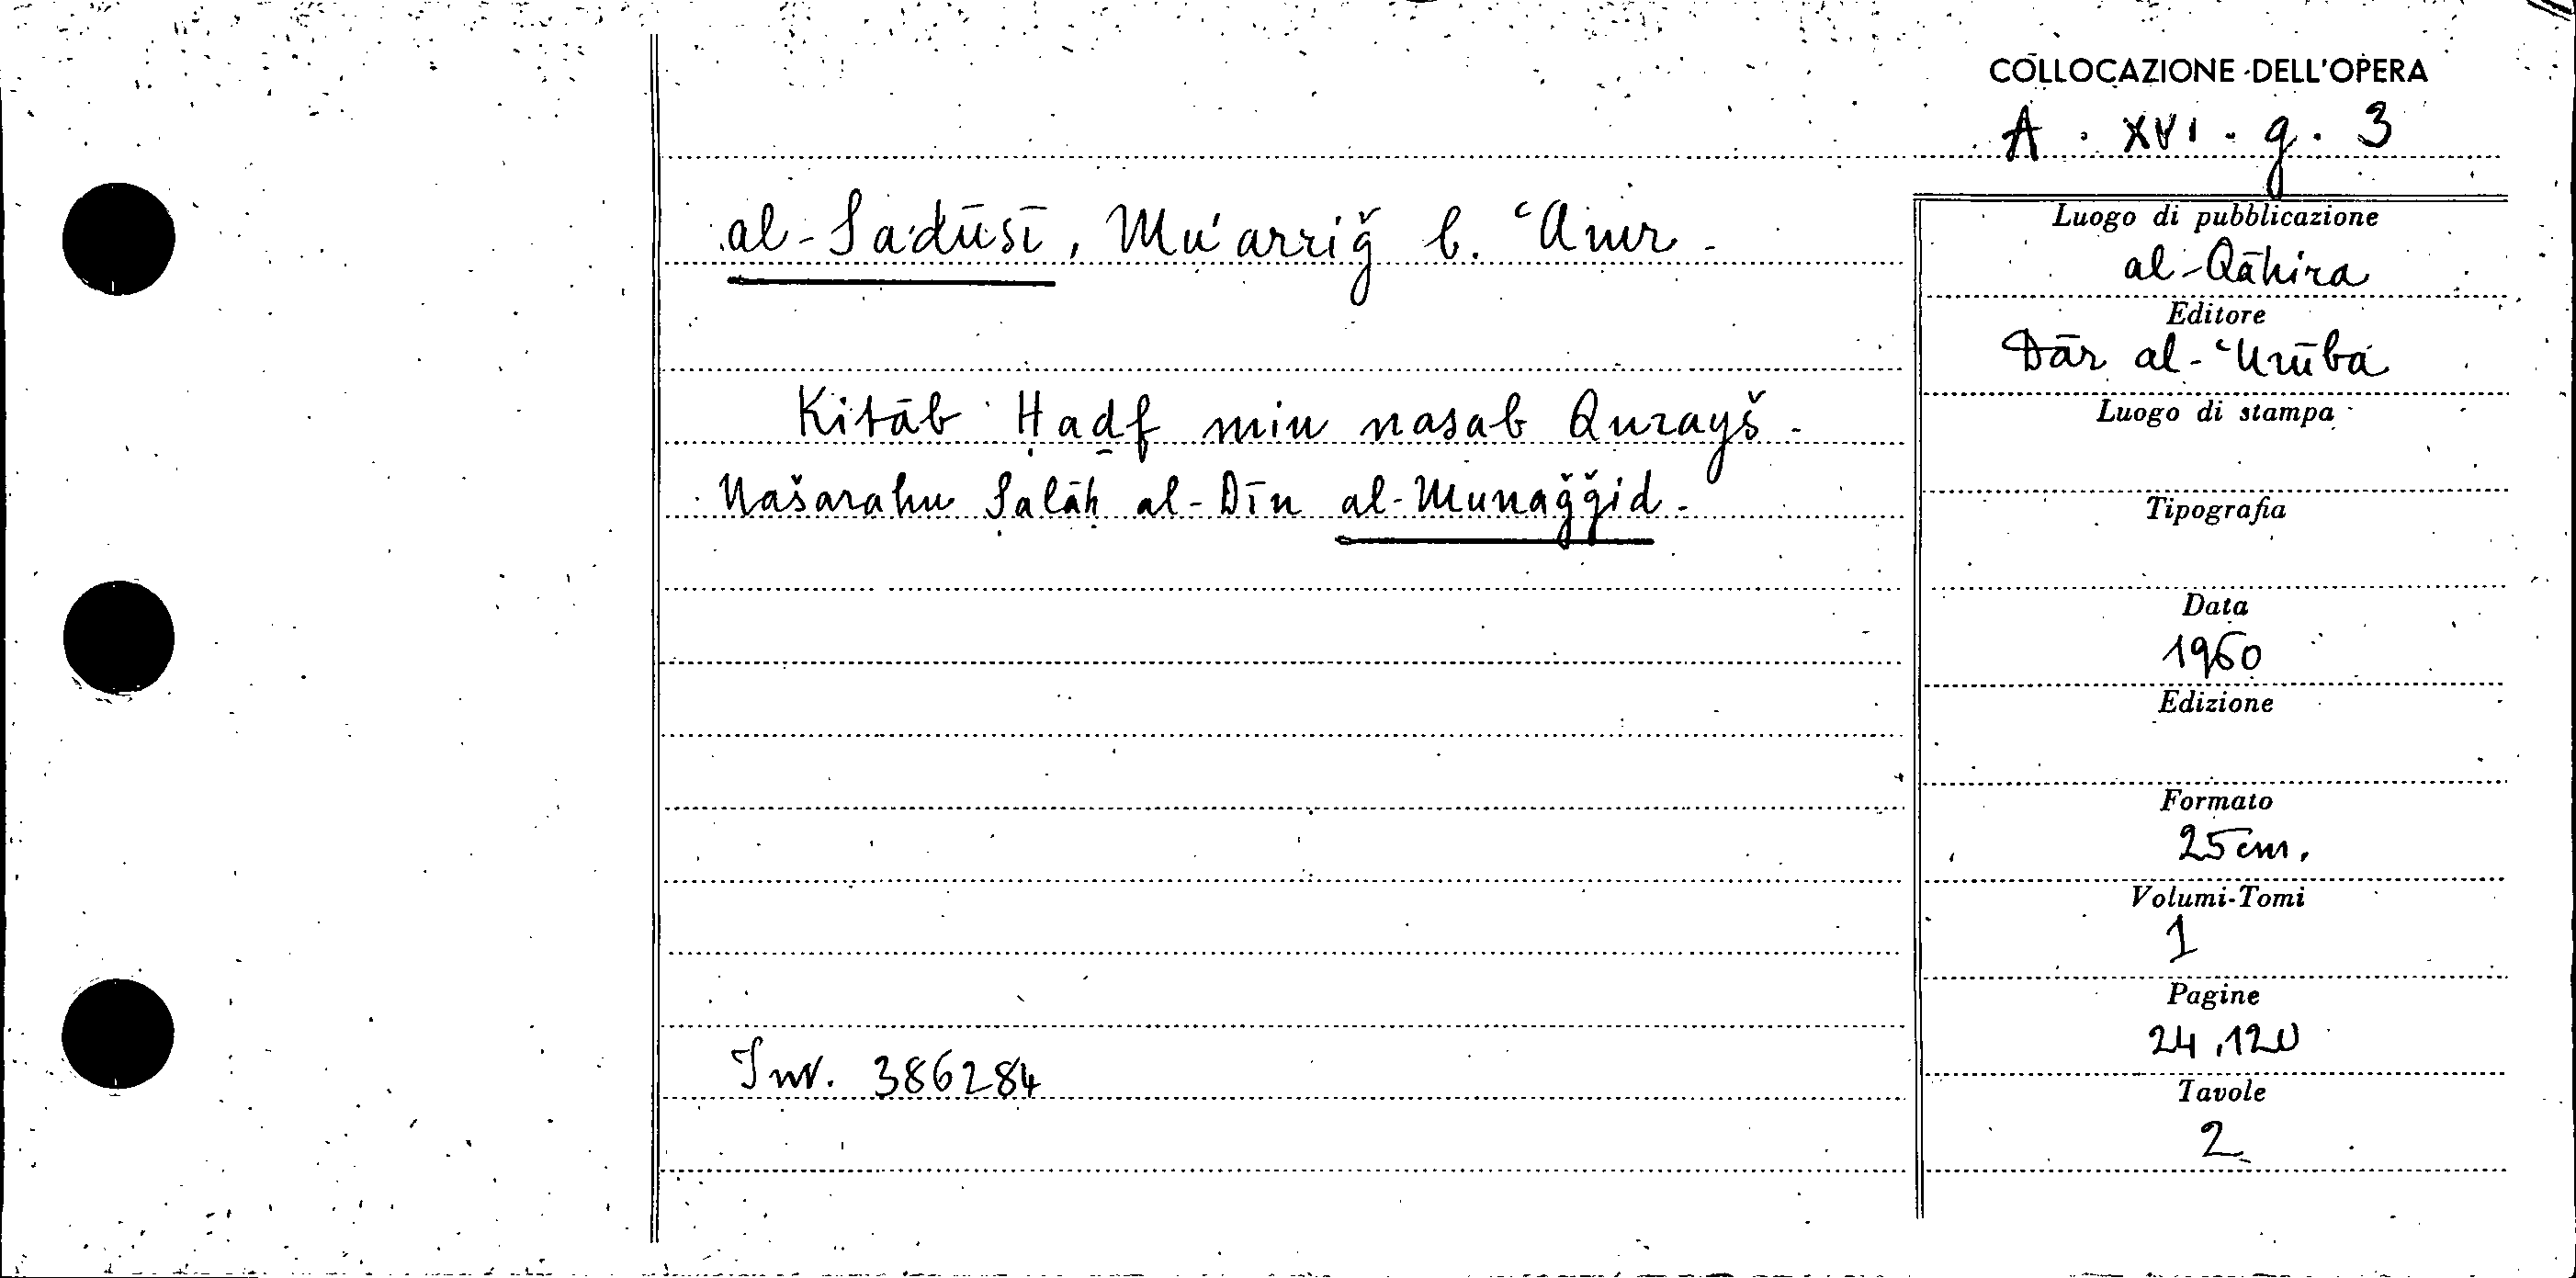 COLLOCAZIONE DELL'OPERA
A. XVI. g. 3
al-Sadūsī, Mu'arriǧ b. ʿAmr -
Kitāb Ḥaḏf min nasab Qurayš -
Našarahu Ṣalāḥ al-Dīn al-Munaǧǧid -
Inv. 386284
Luogo di pubblicazione
al-Qāhira
Editore
Dār al-ʿUrūba
Luogo di stampa
Tipografia
Data
1960
Edizione
Formato
25 cm.
Volumi-Tomi
1
Pagine
24,120
Tavole
2